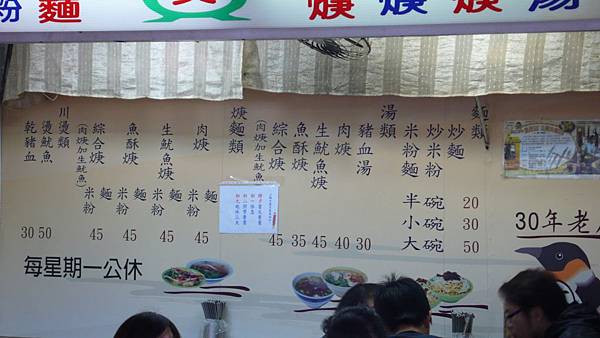 粉麵
羹羹羹湯
麵類
炒麵
炒米粉
米粉麵
半碗 20
小碗 30
大碗 50
湯類
豬血湯 30
肉羹 40
生魷魚羹 45
魚酥羹 35
綜合羹 45
(肉羹加生魷魚)
羹麵類
肉羹 麵 米粉 45
生魷魚羹 麵 米粉 45
魚酥羹 麵 米粉 45
綜合羹 麵 米粉 45
(肉羹加生魷魚)
川燙類
燙魷魚 50
乾豬血 30
30年老
每星期一公休